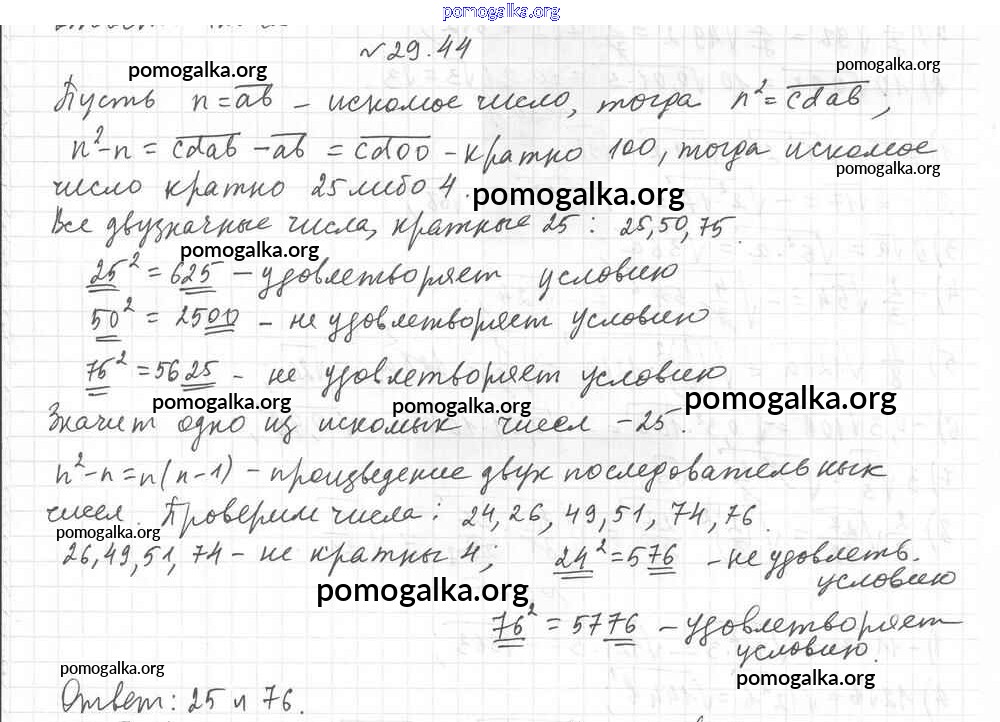 pomogalka.org
№ 29.44
pomogalka.org
pomogalka.org
Пусть n = ab – искомое число, тогда n² = cdab,
n² - n = cdab - ab = cd00 - кратно 100, тогда искомое
pomogalka.org
число кратно 25 либо 4.
pomogalka.org
Все двузначные числа, кратные 25: 25, 50, 75.
pomogalka.org
25² = 625 – удовлетворяет условию
50² = 2500 – не удовлетворяет условию
75² = 5625 – не удовлетворяет условию
pomogalka.org
pomogalka.org
pomogalka.org
Значит одно из искомых чисел – 25.
n² - n = n(n-1) – произведение двух последовательных
чисел. Проверим числа: 24, 26, 49, 51, 74, 76.
pomogalka.org
26, 49, 51, 74 – не кратны 4; 24² = 576 – не удовлетв.
условию
pomogalka.org
76² = 5776 – удовлетворяет
условию.
pomogalka.org
pomogalka.org
Ответ: 25 и 76.
pomogalka.org